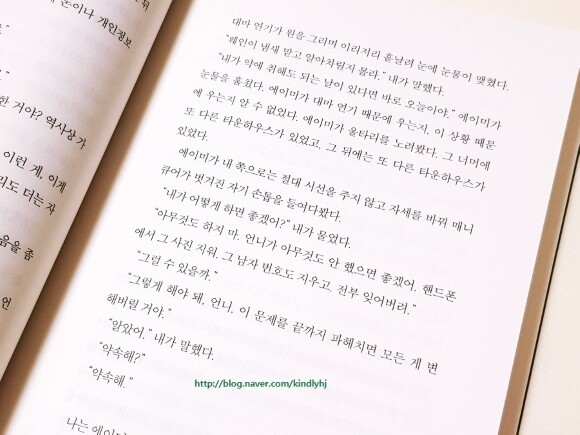 뒤
폰이나 개인정보
."
한 거야? 역사상 가
이런 게, 이게
리도 더는 자
음을 좁
언
대마 연기가 원을 그리며 이리저리 흩날려 눈에 눈물이 맺혔다.
"웨인이 냄새 맡고 알아차릴지 몰라." 내가 말했다.
"내가 약에 취해도 되는 날이 있다면 바로 오늘이야." 에이미가
눈물을 훔쳤다. 에이미가 대마 연기 때문에 우는지, 이 상황 때문
에 우는지 알 수 없었다. 에이미가 울타리를 노려봤다. 그 너머에
또 다른 타운하우스가 있었고, 그 뒤에는 또 다른 타운하우스가
있었다.
에이미가 내 쪽으로는 절대 시선을 주지 않고 자세를 바꿔 매니
큐어가 벗겨진 자기 손톱을 들여다봤다.
"내가 어떻게 하면 좋겠어?" 내가 물었다.
"아무것도 하지 마. 언니가 아무것도 안 했으면 좋겠어. 핸드폰
에서 그 사진 지워. 그 남자 번호도 지우고. 전부 잊어버려."
"그럴 수 있을까."
"그렇게 해야 돼, 언니. 이 문제를 끝까지 파헤치면 모든 게 변
해버릴 거야."
"알았어." 내가 말했다.
"약속해?"
"약속해."
http://blog.naver.com/kindlyhj
나는 에이미